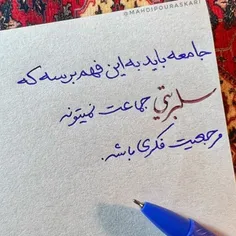 @MAHDIPOURASKARI
جامعه باید به این فهم برسه که
سلبریتی جماعت نمیتونه
مرجعیت فکری باشه.